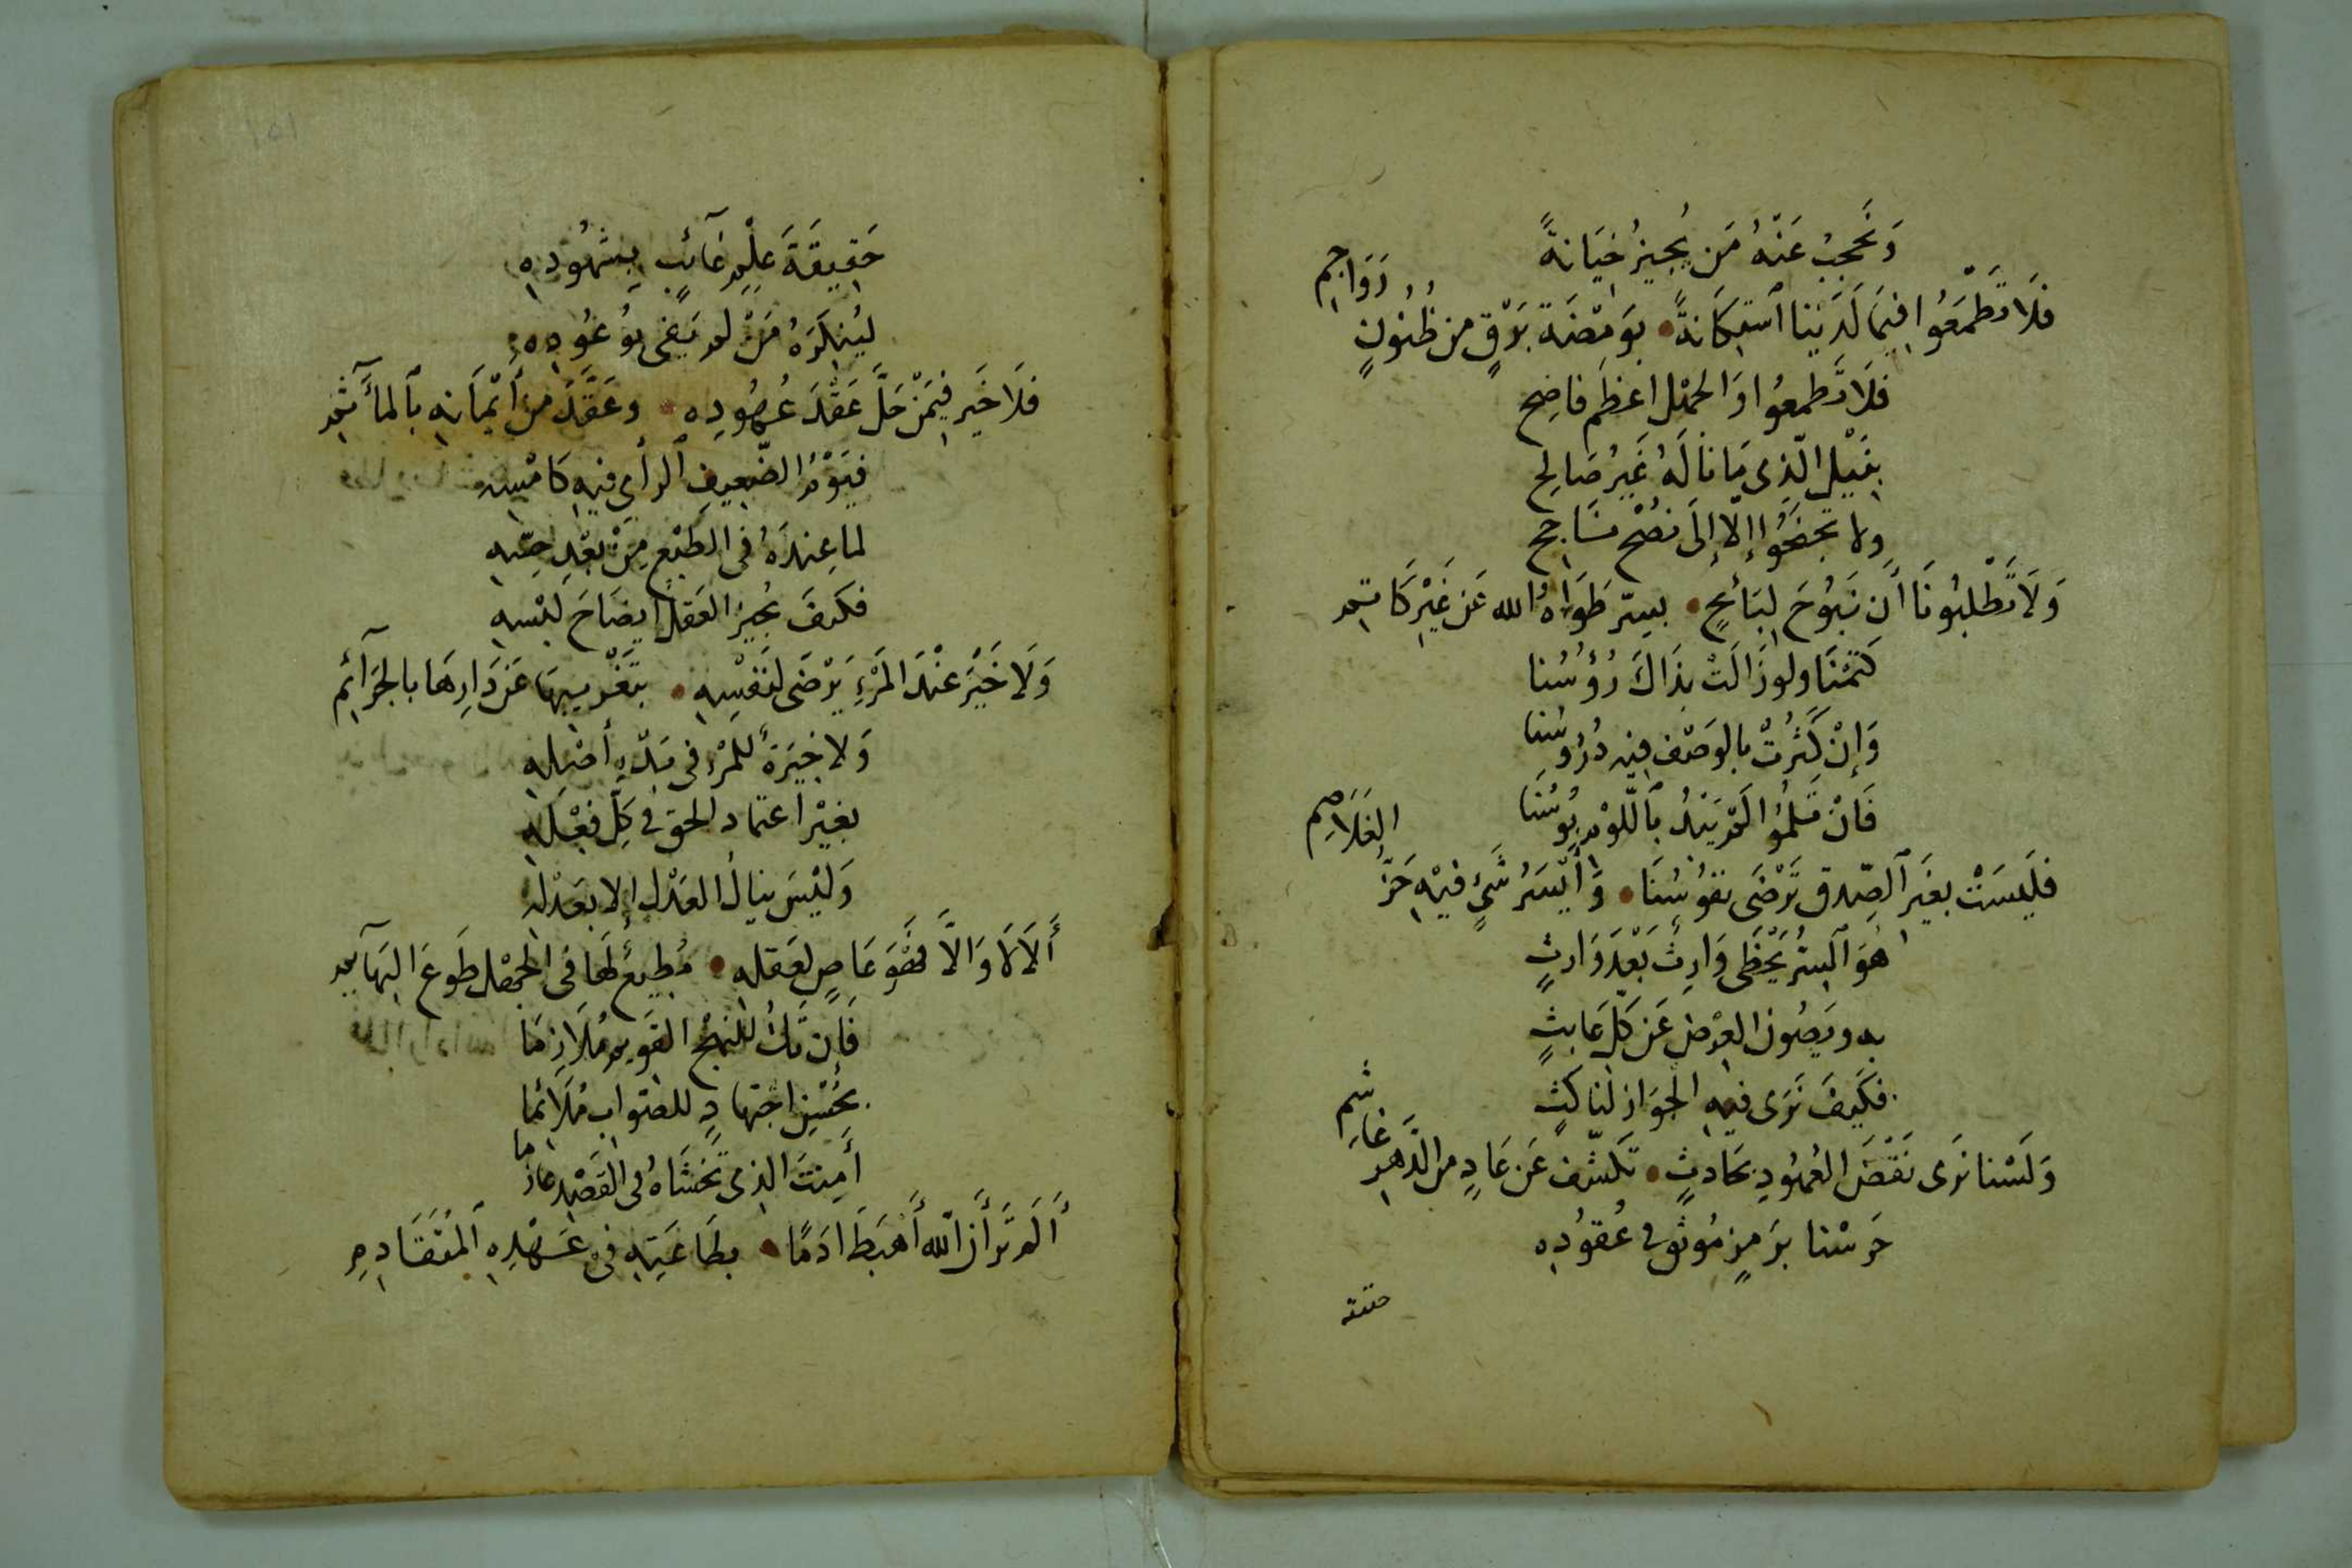 وَنَحجبُ عَنْهُ مَن يُجِيزُ خيَانةً
فَلَا تَطْمَعُوا فيمَا لَدَيْنا اَستِكَانةً • بوَمضَةِ بَرْقٍ من ظُنُونٍ رَوَاجِم
فلَا تَطمعُوا وَالجهْل اعظَم فاضِح
بنَيْل الّذى مَا نَالَهُ غَيرُ صَالِح
ولا تجنَحُوا إلّا إلَى نصُحْ
وَلَا تَطْلبُونَا أَن نَبُوحَ لبَائِحٍ • بسِرّ طَوَاهُ الله عَن غَيْرِ كَاتم
كتَمْنَا ولو زَالَتْ بذَاكَ رُؤُسُنا
وَإِنْ كَثُرتْ بالوَصْف فيه دُرُوسُنا
فَانْ تَسلمُوا لَمْ يَبْدُ بٱللَّوْمِ بُوسُنَا
فلَيسَتْ بغَيرِ ٱلصِّدق تَرْضَى نفُوسُنَا • وَأيْسَرُ شَيْءٍ فيْهِ حَزُّ الغَلَاصِم
هُوَ ٱلسِّرُّ يَحْظَى وَارِثٌ بَعْدَ وَارثٍ
به ويَصُون العِرْضَ عَن كلّ عَابثٍ
فكَيفَ نَرَى فيهِ الجوَازَ لنَاكثٍ
وَلَسْنا نرَى نَقْضَ العُهُودِ بحَادثٍ • تكَشّفَ عَن عَادٍ من الدَّهرِ غَاشِم
حَرسْنا برَمزٍ مُوثَقٍ في عُقُودِه
حقيقة
حَقِيقَةَ عِلْمٍ غَآئبٍ بِشهُودِهِ
ليُنكِرَهُ مَنْ لم يَفى بوُعُودِه
فلَا خَيرَ فيمَنْ حَلَّ عَقْدَ عُهُودِه • وعَقَّدَ من أَيْمَانهِ بٱلمَآثم
فيَوْمُ الضّعيفِ ٱلرأى فيهِ كَامْسِه
لما عِندَهُ في الطَبْعِ مِنْ بُعْدِ حِسّهِ
فكَيفَ يُجيزُ العَقلُ ايضَاحَ لبْسهِ
وَلَا خَيْرَ عنْدَ المَرْءِ يَرْضَى لنَفْسِهِ • بتَغْريبهَا عَن دَارِهَا بالجرَآئم
وَلا خِيَرَةٌ للمَرْء فى بَدْءِ أصْلِهِ
بغيْر اعتماد الحق في كلّ فعْلهِ
وَلَيْسَ ينالُ العَدْل إلا بعَدْلهِ
أَلَا لَا وَالَّا فَهْوَ عَاصٍ لعَقلِه • مُطِيعٌ لهَا فى الجَهْل طَوعَ البَهَآئم
فَإن تَكُ للنَهْج القَوِيم مُلَازِمَا
بحُسْنِ اجتهادٍ للصَّواب مُلَائمَا
أَمِنتَ الذى تَخشَاهُ فى القَصْدِ عَازمَا
أَلَم تَرَ أنَّ الله أَهْبَطَ ادَمًا • بطَاعَتِهِ فى عَهْدِهِ ٱلمُتَقَادِمِ